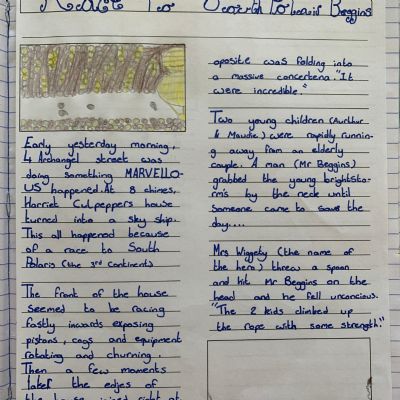 Race To South Polaris Begins
Early yesterday morning,
4 Archangel street was
doing something MARVELLO-
US happened. At 8 chimes,
Harriet Culpeppers house
turned into a sky ship.
This all happened because
of a race to South
Polaris (the 3rd Continent)
The front of the house
seemed to be racing
fastly inwards exposing
pistons, cogs and equipment
rotating and churning.
Then a few moments
later the edges of
the house joined right at
oposite was folding into
a massive concertena. "It
were incredible."
Two young children (Aurthur
& Maudie) were rapidly runnin-
g away from an elderly
couple. A man (Mr Beggins)
grabbed the young brightsto-
rm's by the neck until
someone came to save the
day....
Mrs Wiggety (the name of
the hero) threw a spoon
and hit Mr Beggins on the
head and he fell unconcious.
"The 2 kids climbed up
the rope with some strength."